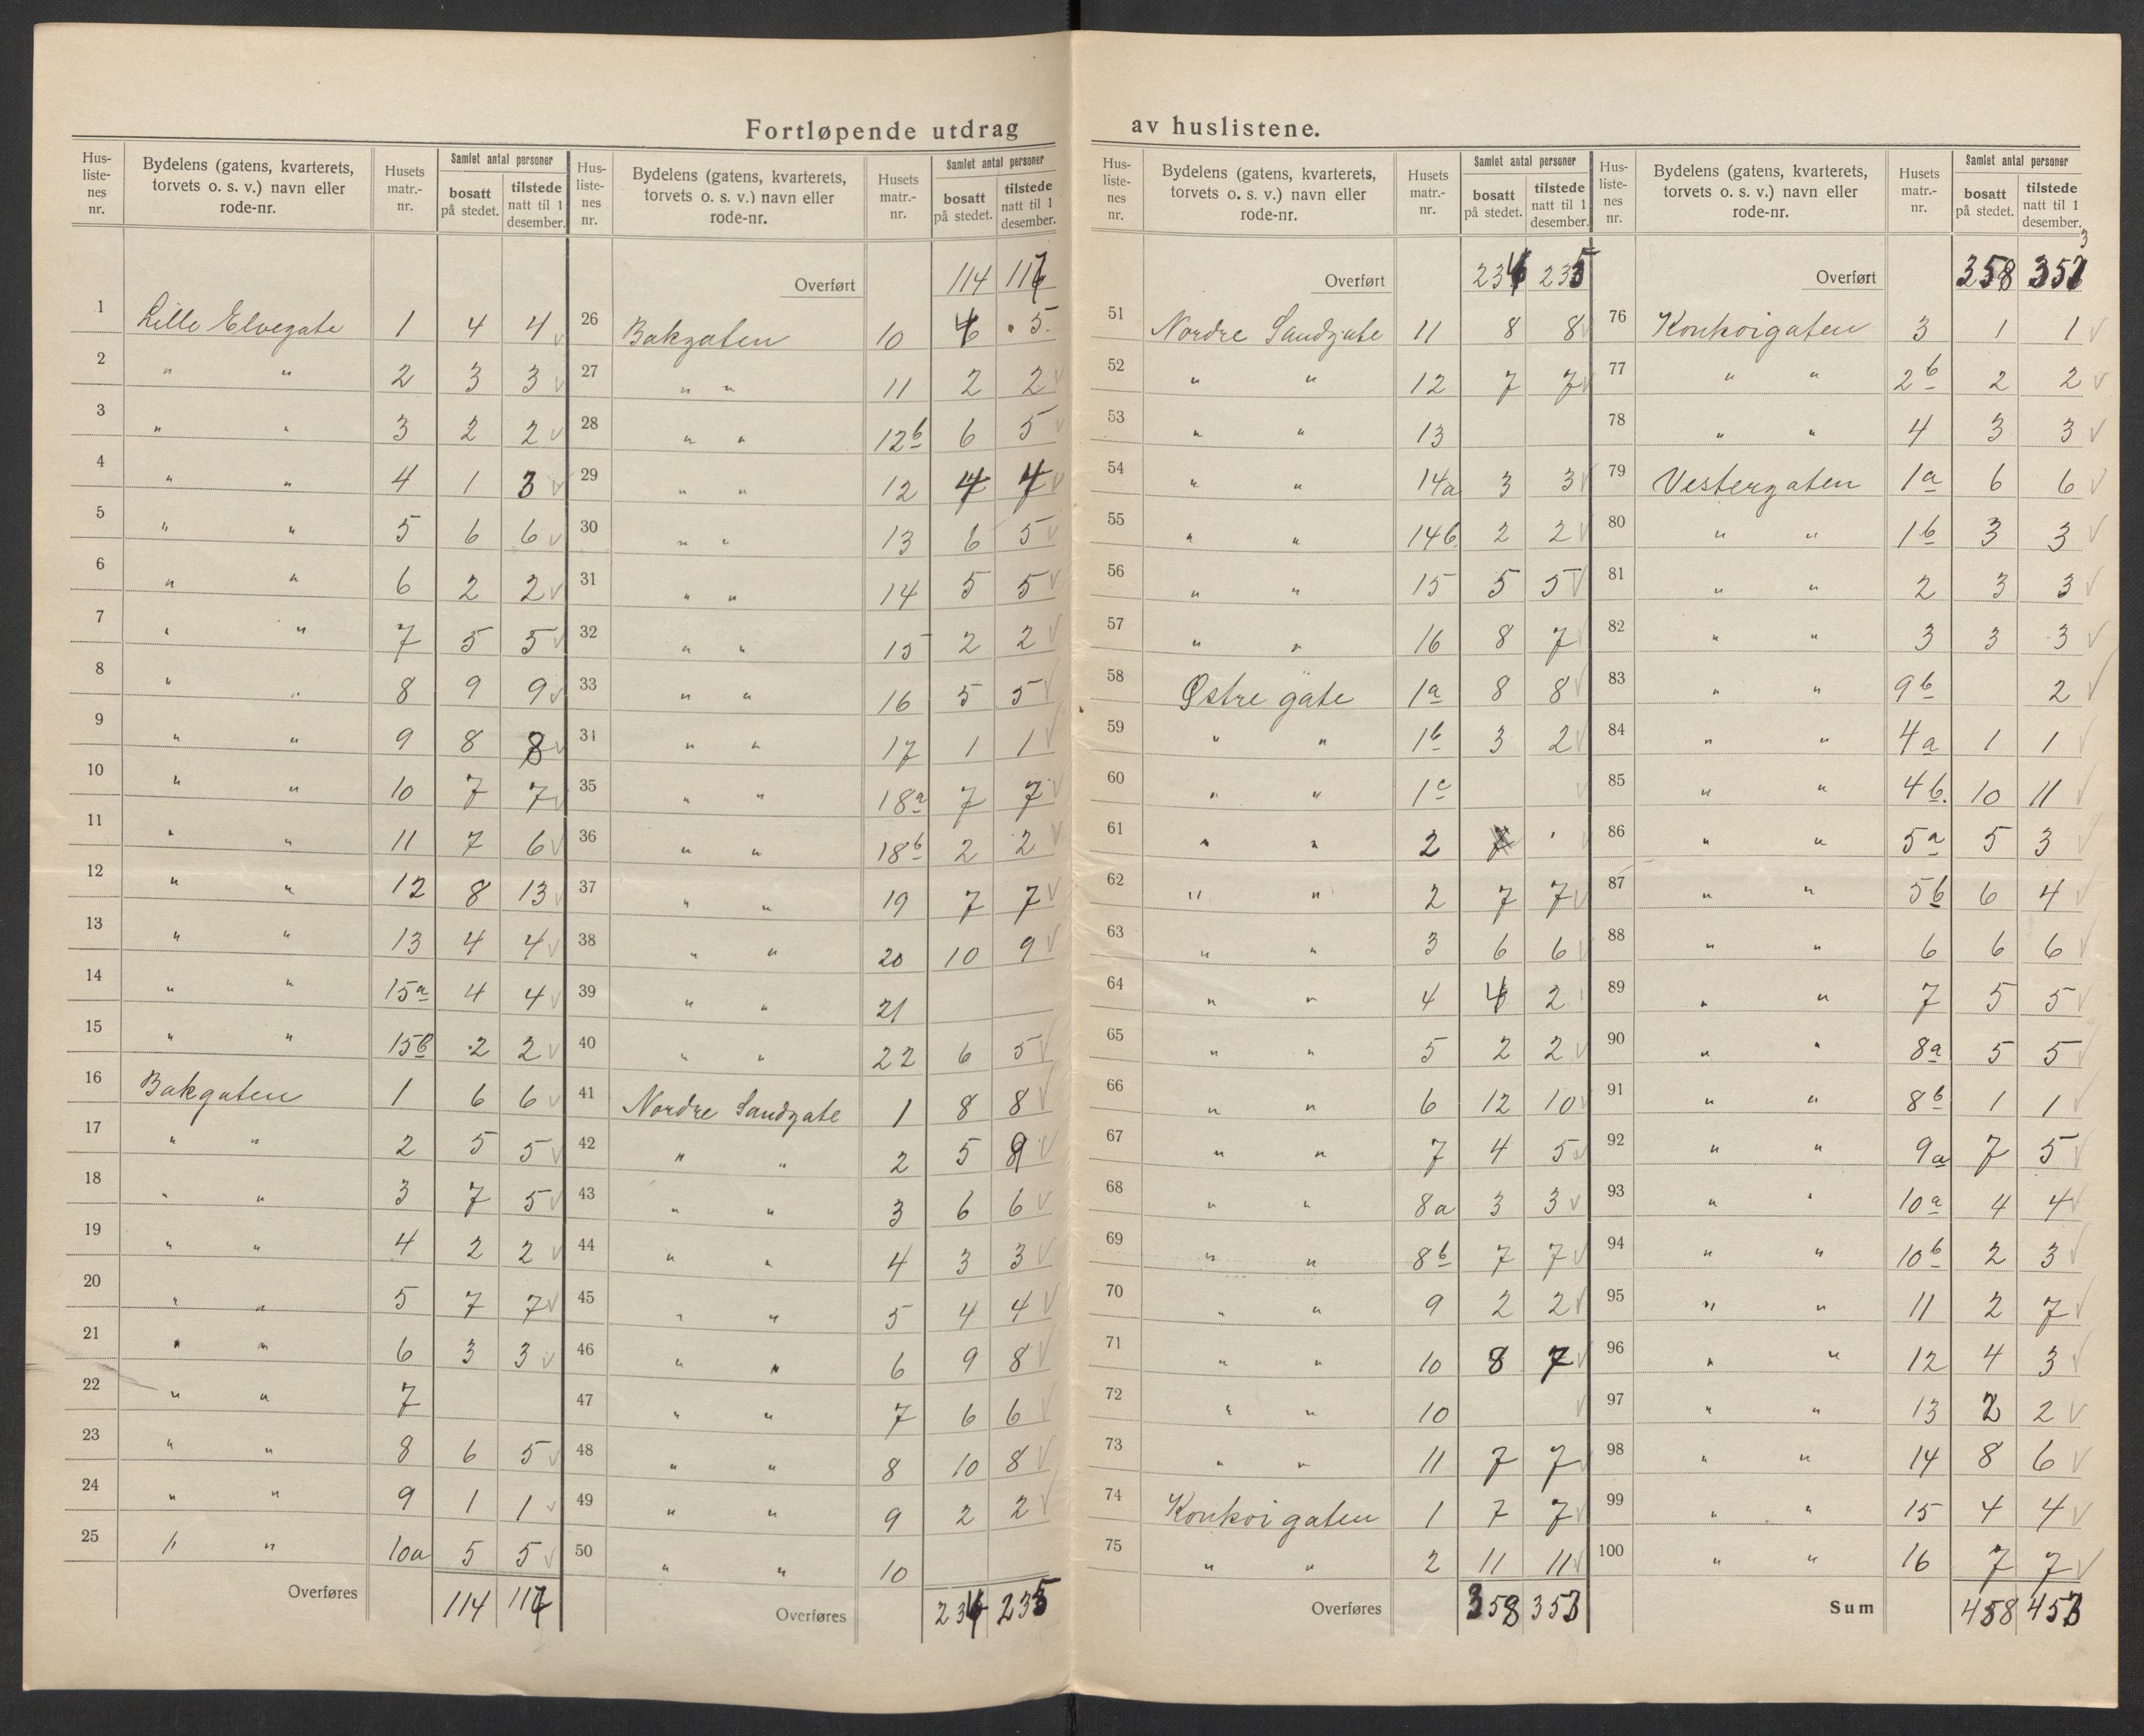 Fortløpende utdrag av huslistene.
Hus-listenes nr. Bydelens (gatens, kvarterets, torvets o. s. v.) navn eller rode-nr. Husets matr.-nr. Samlet antal personer bosatt på stedet. tilstede natt til 1 desember.
1 Lille Elvegate 1 4 4
2 " " 2 3 3
3 " " 3 2 2
4 " " 4 1 3
5 " " 5 6 6
6 " " 6 2 2
7 " " 7 5 5
8 " " 8 9 9
9 " " 9 8 8
10 " " 10 7 7
11 " " 11 7 6
12 " " 12 8 13
13 " " 13 4 4
14 " " 15a 4 4
15 " " 15b 2 2
16 Bakgaten 1 6 6
17 " " 2 5 5
18 " " 3 7 5
19 " " 4 2 2
20 " " 5 7 7
21 " " 6 3 3
22 " " 7
23 " " 8 6 5
24 " " 9 1 1
25 " " 10a 5 5
Overføres 114 117
Hus-listenes nr. Bydelens (gatens, kvarterets, torvets o. s. v.) navn eller rode-nr. Husets matr.-nr. Samlet antal personer bosatt på stedet. tilstede natt til 1 desember.
Overført 114 117
26 Bakgaten 10 5
27 " " 11 2 2
28 " " 12b 6 5
29 " " 12 4 4
30 " " 13 6 5
31 " " 14 5 5
32 " " 15 2 2
33 " " 16 5 5
34 " " 17 1 1
35 " " 18a 7 7
36 " " 18b 2 2
37 " " 19 7 7
38 " " 20 10 9
39 " " 21
40 " " 22 6 5
41 Nordre Sandgate 1 8 8
42 " " 2 5 9
43 " " 3 6 6
44 " " 4 3 3
45 " " 5 4 4
46 " " 6 9 8
47 " " 7 6 6
48 " " 8 10 8
49 " " 9 2 2
50 " " 10
Overføres 234 235
Hus-listenes nr. Bydelens (gatens, kvarterets, torvets o. s. v.) navn eller rode-nr. Husets matr.-nr. Samlet antal personer bosatt på stedet. tilstede natt til 1 desember.
Overført 234 235
51 Nordre Sandgate 11 8 8
52 " " 12 7 7
53 " " 13
54 " " 14a 3 3
55 " " 14b 2 2
56 " " 15 5 5
57 " " 16 8 7
58 Østre gate 1a 8 8
59 " " 1b 3 2
60 " " 1c
61 " " 2
62 " " 2 7 7
63 " " 3 6 6
64 " " 4 4 2
65 " " 5 2 2
66 " " 6 12 10
67 " " 7 4 5
68 " " 8a 3 3
69 " " 8b 7 7
70 " " 9 2 2
71 " " 10 8 7
72 " " 10
73 " " 11 7 7
74 Konkoigaten 1 7 7
75 " " 2 11 11
Overføres 358 353
Hus-listenes nr. Bydelens (gatens, kvarterets, torvets o. s. v.) navn eller rode-nr. Husets matr.-nr. Samlet antal personer bosatt på stedet. tilstede natt til 1 desember.
Overført 358 353
76 Konkoigaten 3 1 1
77 " " 2b 2 2
78 " " 4 3 3
79 Vestergaten 1a 6 6
80 " " 1b 3 3
81 " " 2 3 3
82 " " 3 3 3
83 " " 9b 2
84 " " 4a 1 1
85 " " 4b. 10 11
86 " " 5a 5 3
87 " " 5b 6 4
88 " " 6 6 6
89 " " 7 5 5
90 " " 8a 5 5
91 " " 8b 1 1
92 " " 9a 7 5
93 " " 10a 4 4
94 " " 10b 2 3
95 " " 11 2 7
96 " " 12 4 3
97 " " 13 2 2
98 " " 14 8 6
99 " " 15 4 4
100 " " 16 7 7
Sum 458 453